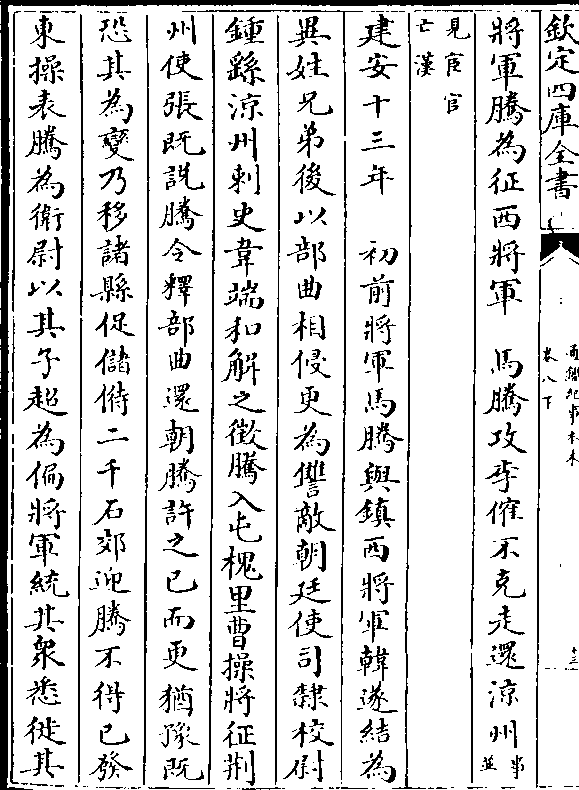 欽定四庫全書
通鑑紀事本末
卷八下
十三
將軍騰為征西將軍　馬騰攻李傕不克走還涼州事並
見宦官亡漢
建安十三年　初前將軍馬騰與鎮西將軍韓遂結為
異姓兄弟後以部曲相侵更為讐敵朝廷使司隸校尉
鍾繇涼州刺史韋端和解之徵騰入屯槐里曹操將征荆
州使張既說騰令釋部曲還朝騰許之已而更猶豫既
恐其為變乃移諸縣促儲偫二千石郊迎騰不得已發
東操表騰為衛尉以其子超為偏將軍統其衆悉徙其